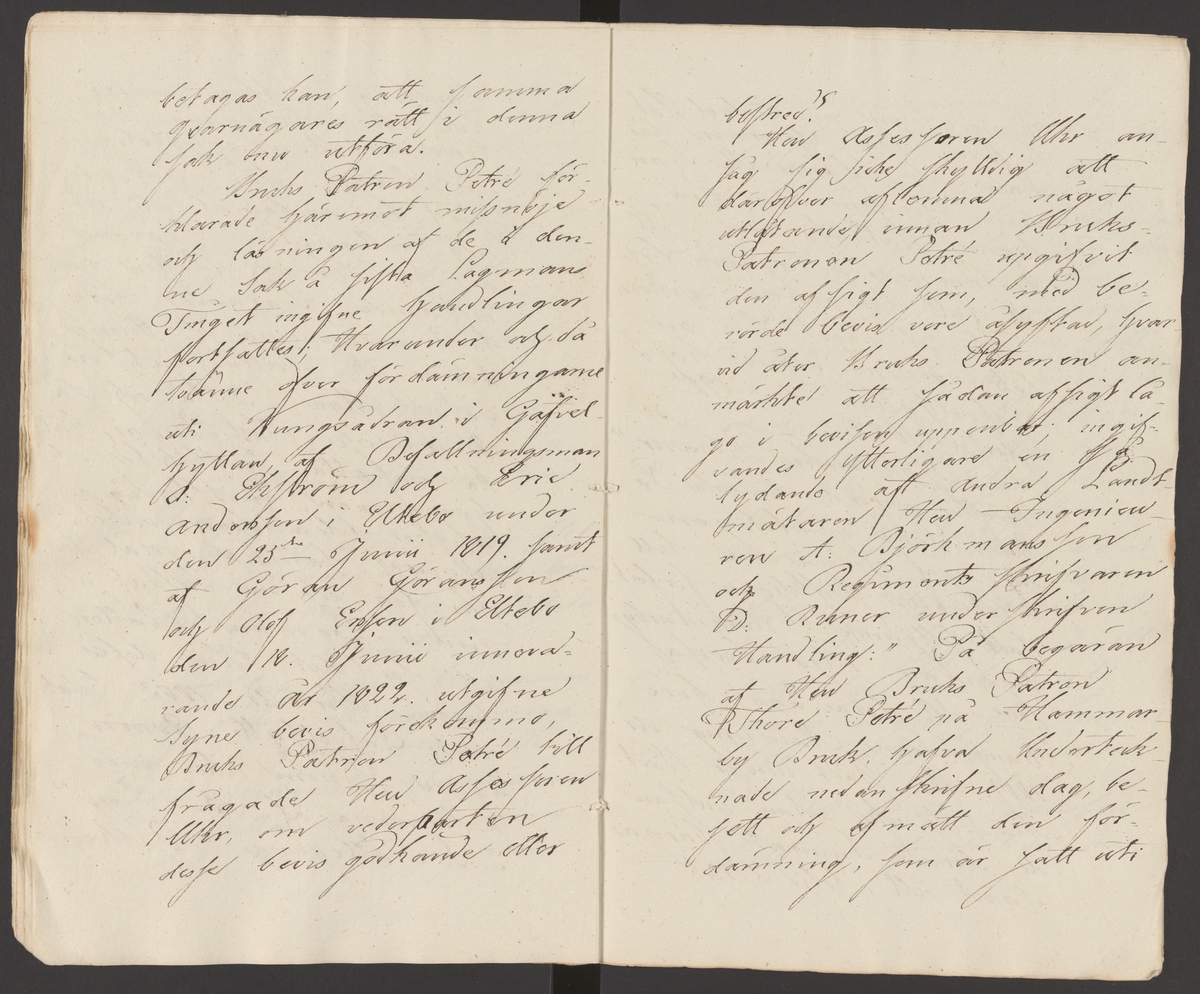 betagas kan, att samma
qvarnägares rätt i denna
sak nu utföra.
Bruks Patron Petré för-
klarade häremot missnöje
och läsningen af de i den-
ne Sak å sista Lagmans
Tinget ingifne handlingar
fortsattes; Hvarunder och då
tvänne öfver fördämningarne
uti Kungsådran i Gäfvel-
hyttan af Befallningsman
Ekström och Eric
Andersson i Elkebo under
den 25te Junii 1819. samt
af Göran Göransson
och Olof Ersson i Elkebo
den 12. Junii inneva-
rande år 1822. utgifne
Syne bevis förekommo,
Bruks Patron Petré till
frågade Herr Assessoren
Uhr, om vederparten
desse bevis godkände eller
bestred?
Herr Assessoren Uhr an-
såg sig icke skyldig att
däröfver aflemna något
utlåtande, innan Bruks-
Patronen Petré upgifvit
den afsigt som, med be-
rörde bevis vore åsyftad, hvar
vid åter Bruks Patronen an-
märkte att sådan afsigt lå-
ge i bevisen uppenbar; ingif-
vandes ytterligare en så
lydande af Andra Landt-
mätaren Herr Ingenieu-
ren A: Björkmansson
och Regiments skrifvaren
D: Runer underskrifven
Handling: " På begäran
af Herr Bruks Patron
Thore Petré på Hammar-
by Bruk, hafva Underteck-
nade nedanskrifne dag, be-
sett och afmätt den för-
dämning, som är satt uti